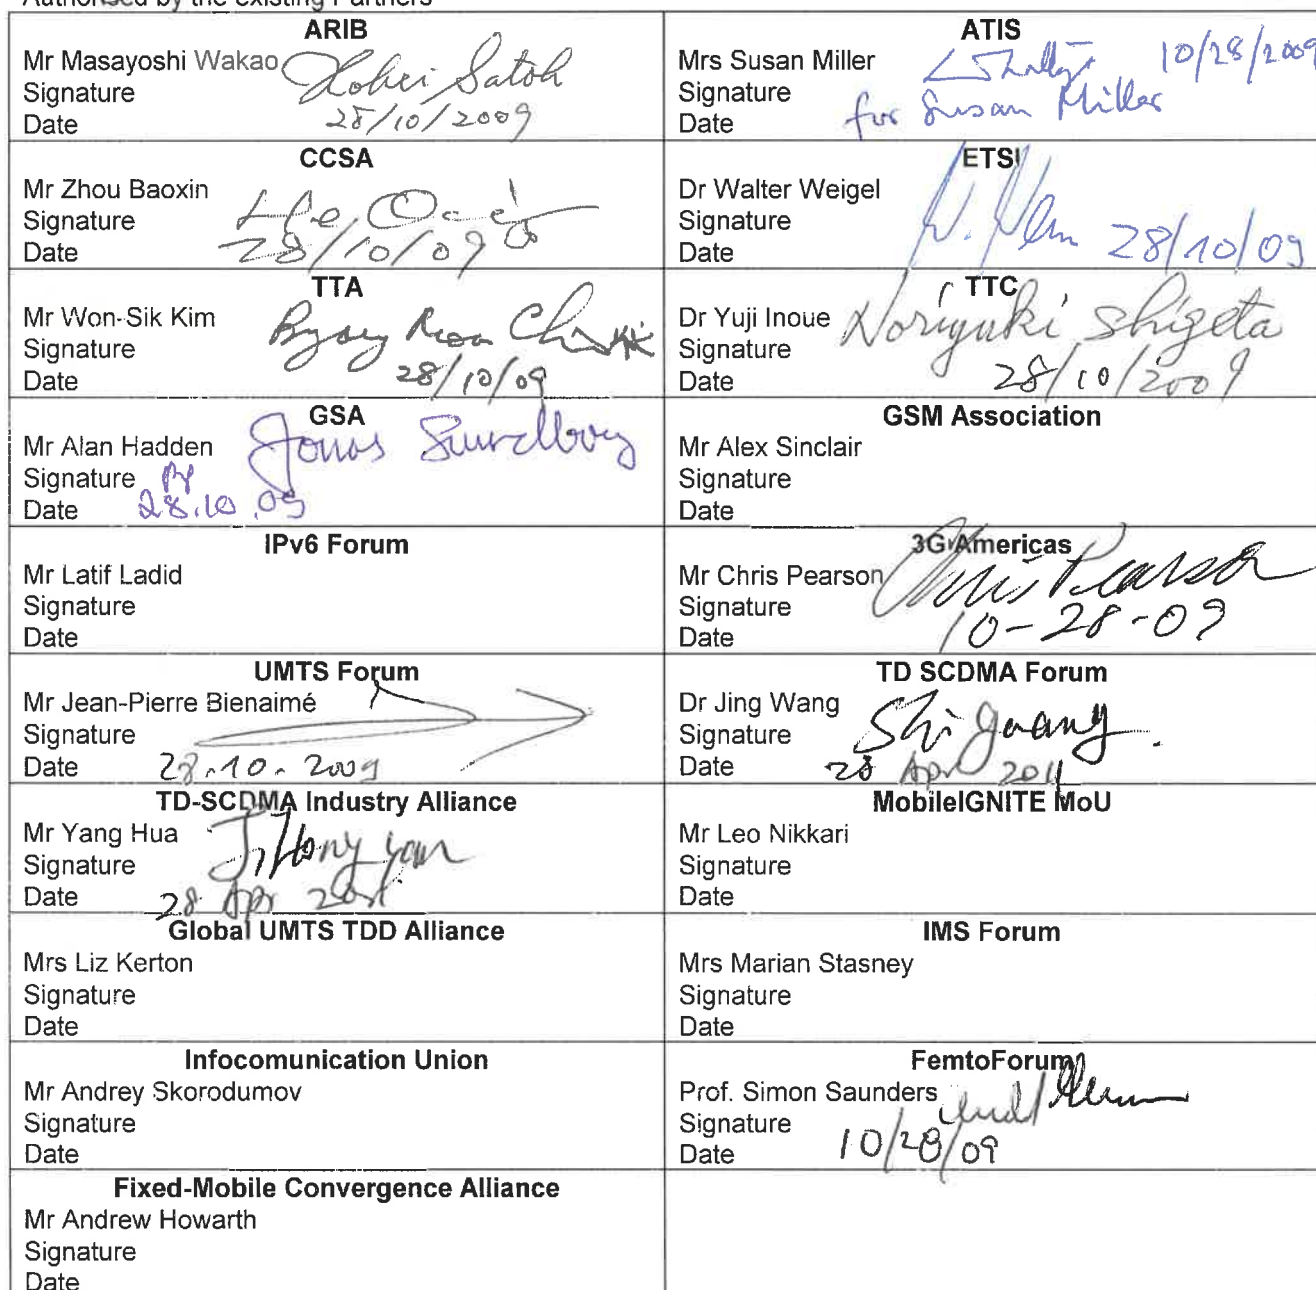 Authorised by the existing Partners
ARIB
Mr Masayoshi Wakao
Signature Kohei Satoh
Date 28/10/2009
ATIS
Mrs Susan Miller 10/28/2009
Signature
Date for Susan Miller
CCSA
Mr Zhou Baoxin
Signature
Date 28/10/09
ETSI
Dr Walter Weigel
Signature
Date 28/10/09
TTA
Mr Won-Sik Kim
Signature
Date 28/10/09
TTC
Dr Yuji Inoue Noriyuki Shigeta
Signature
Date 28/10/2009
GSA
Mr Alan Hadden Jonas Sundborg
Signature pp
Date 28.10.09
GSM Association
Mr Alex Sinclair
Signature
Date
IPv6 Forum
Mr Latif Ladid
Signature
Date
3G Americas
Mr Chris Pearson Chris Pearson
Signature
Date 10-28-09
UMTS Forum
Mr Jean-Pierre Bienaimé
Signature
Date 28.10.2009
TD SCDMA Forum
Dr Jing Wang
Signature Shi Guang
Date 28 Apr 2011
TD-SCDMA Industry Alliance
Mr Yang Hua
Signature
Date 28 Apr
MobileIGNITE MoU
Mr Leo Nikkari
Signature
Date
Global UMTS TDD Alliance
Mrs Liz Kerton
Signature
Date
IMS Forum
Mrs Marian Stasney
Signature
Date
Infocomunication Union
Mr Andrey Skorodumov
Signature
Date
FemtoForum
Prof. Simon Saunders
Signature
Date 10/28/09
Fixed-Mobile Convergence Alliance
Mr Andrew Howarth
Signature
Date